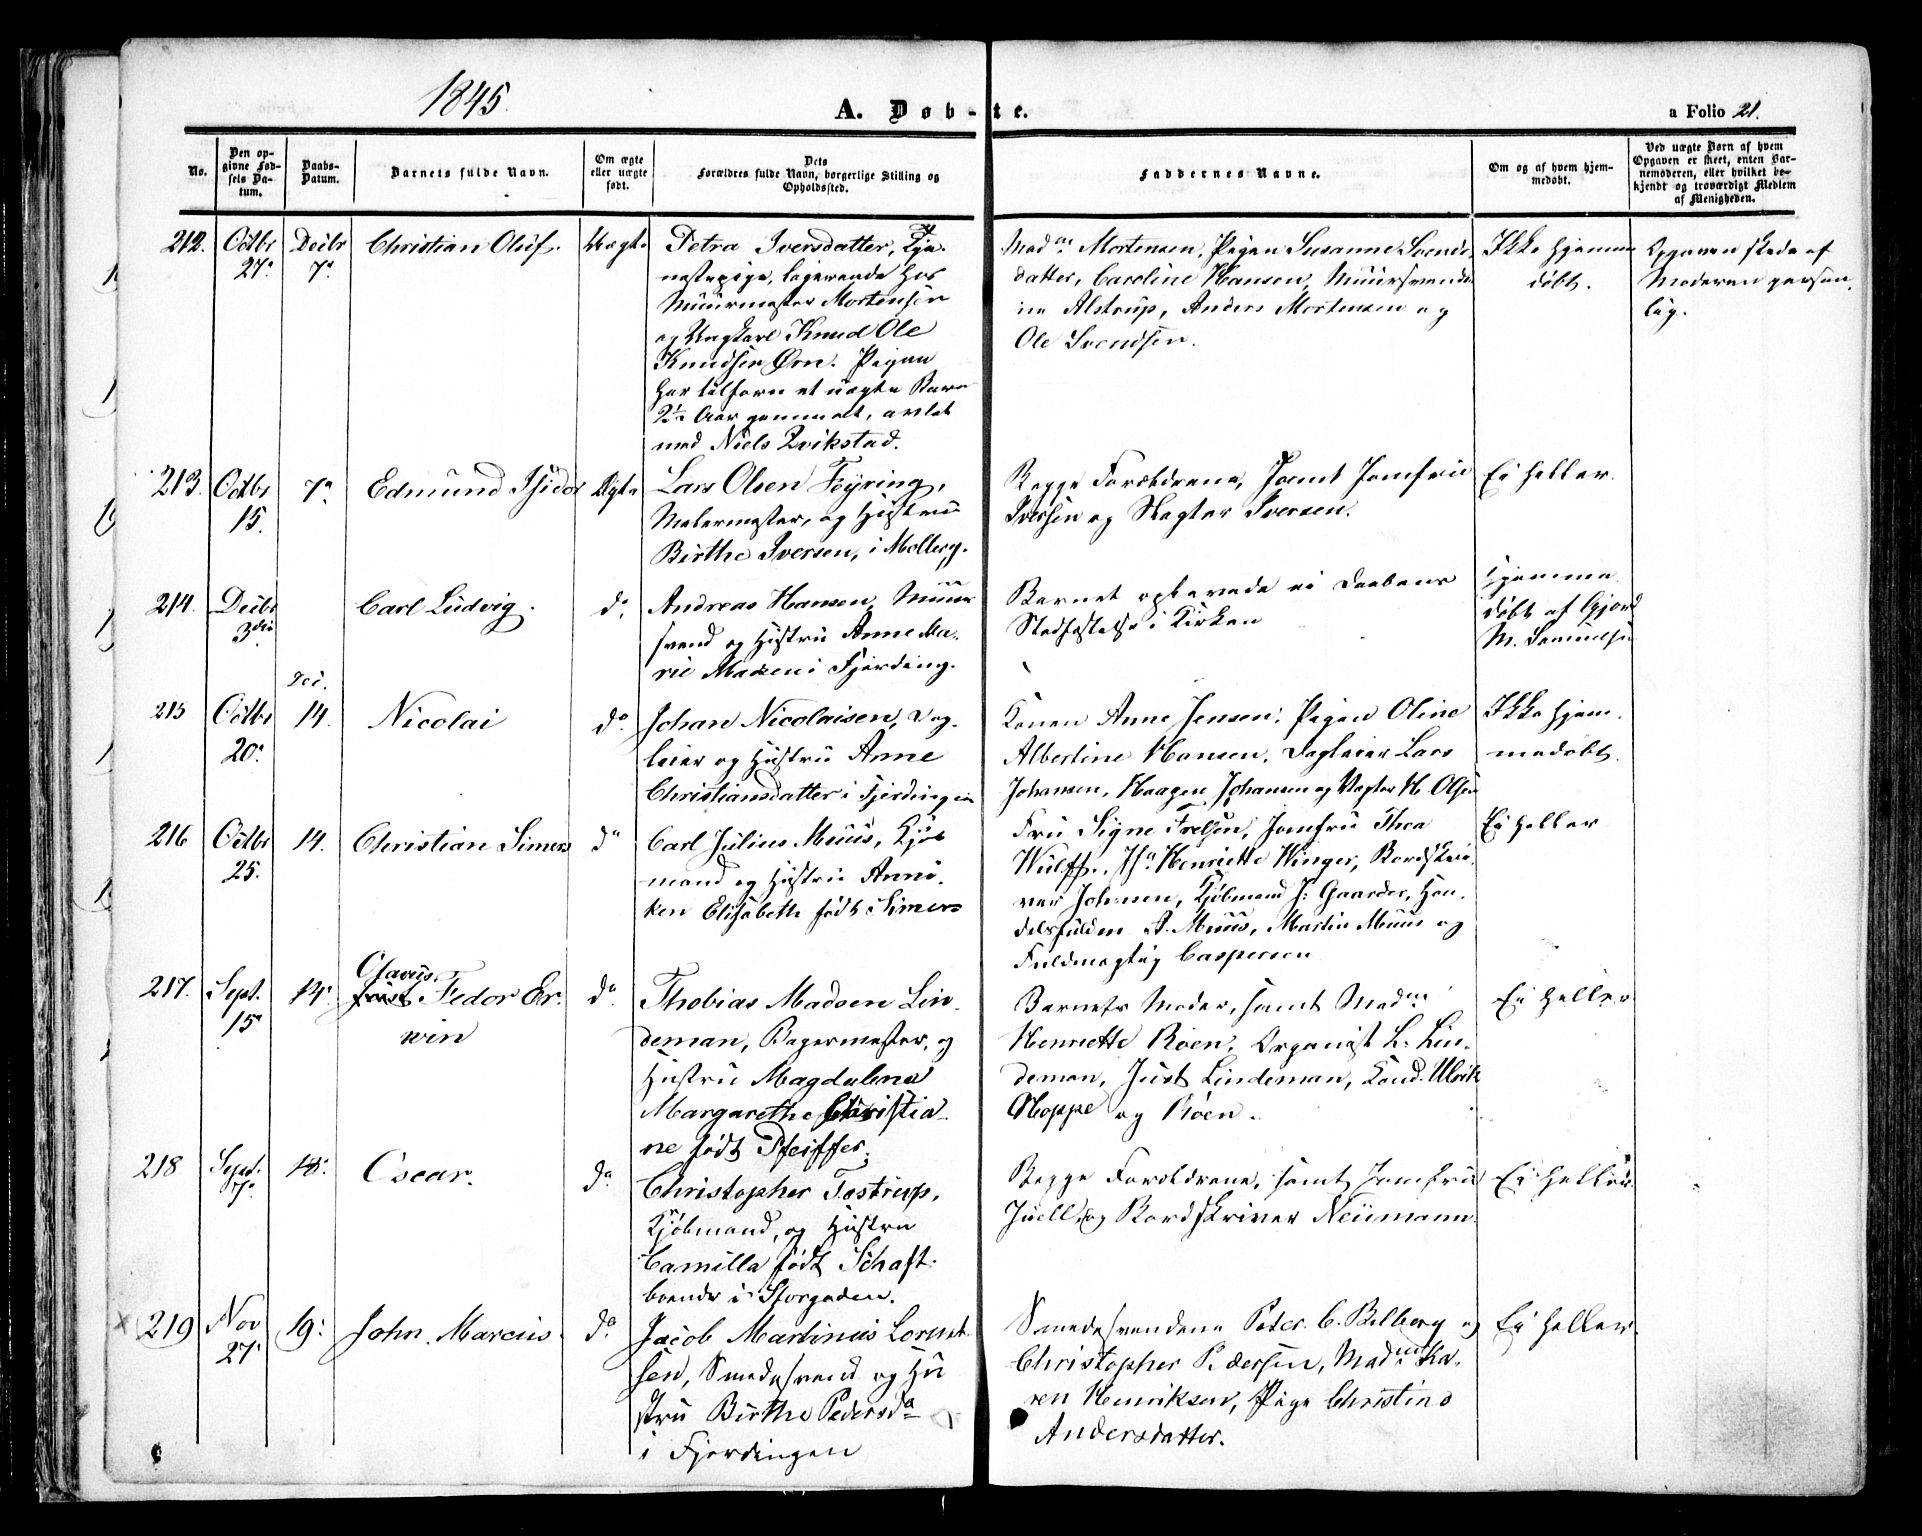 1845.
A. Døb-te.
a Folio 21.
No.
Den op-
givne Fød-
sels Da-
tum.
Daabs-
Datum.
Barnets fulde Navn.
Om ægte
eller uægte
født.
Dets
Forældres fulde Navn, borgerlige Stilling og
Opholdssted.
Faddernes Navne.
Om og af hvem hjem-
medøbt.
Ved uægte Børn af hvem
Opgaven er skeet, enten Bar-
nemoderen, eller hvilket be-
kjendt og troværdigt Medlem
af Menigheden.
212.
Octbr
27.
Decbr
7.
Christian Oluf.
Uægte
Petra Iversdatter, Tje-
nestepige, logerende hos
Muurmester Mortensen
og Ungkarl Knud Ole
Knudsen Ørn. Pigen
har tilforn et uægte Barn
2½ Aar gammelt, avlet
med Niels Qvikstad.
Madme Mortensen, Pigen Susanne Svends-
datter, Caroline Hansen, Muursvende-
ne Alstrup, Anders Mortensen og
Ole Svendsen.
Ikke hjemme
døbt.
Opgaven skede af
Moderen person-
lig.
213.
Octbr
15.
7.
Edmund Isidor
Ægte
Lars Olsen Feyring,
Malermester, og Hustru
Birthe Iversen, i Mollerg.
Begge Forældrene, samt Jomfru
Iversen og Slagter Iversen.
Ei heller.
214.
Decbr
3die
Carl Ludvig.
do.
Andreas Hansen, Muur
svend og Hustru Anne Ma-
rie Madsen i Fjerding.
Barnet opbevarede ei Daabens
Stadfæstelse i Kirken
Hjemme
døbt af Gjord
M. Samuelsen
215
Octbr
20.
Dec.
14.
Nicolai
do.
Johan Nicolaisen, Dag-
leier og Hustru Anne
Christiansdatter i Fjerdingen
Konen Anne Jensen, Pigen Oline
Albertine Hansen, Dagleier Lars
Johansen, Haagen Johansen og Vægter H. Olsen
Ikke hjem-
medøbt.
216
Octbr
25.
14.
Christian Simers
do
Carl Julius Muus, Kjøb
mand og Hustru Anni-
ken Elisabeth født Simers
Fru Signe Frelsen, Jomfru Thea
Wulff, Jf. Henriette Winger, Bordskri-
ver Johnsen, Kjøbmand J. Gaarder, Han-
delsfuldm A. Muus, Martin Muus og
Fuldmægtig Caspersen
Ei heller
217.
Sept.
15
14.
Olavus
Fedor Er-
win
do.
Thobias Madsen Lin-
deman, Bagermester, og
Hustru Magdalena
Margarethe Christia-
ne født Pfeiffer.
Barnets Moder, samt Madme
Henriette Roen, Organist L. Lin-
deman, Just Lindeman, Cand. Ulrik
Hoppe og Roen.
Ei heller
218
Sept.
7.
18.
Oscar.
do
Christopher Tostrup,
Kjøbmand, og Hustru
Camilla født Schaft-
boende i Storgaden.
Begge Forældrene, samt Jomfru
Juell, og Bordskriver Neumann.
Ei heller
219
Nov
27
19.
John Marcus.
do.
Jacob Martinus Lorent-
sen, Smedesvend og Hu
stru Birthe Pedersda
i Fjerdingen
Smedesvendene Peter C. Belberg og
Christopher Pedersen, Madme Ka-
ren Henriksen, Pige Christine
Andersdatter.
Ei heller.